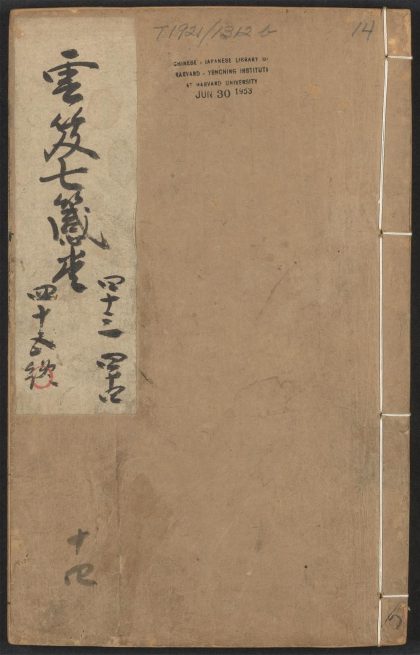 T1921/1312b
14
CHINESE - JAPANESE LIBRARY OF
HARVARD - YENCHING INSTITUTE
AT HARVARD UNIVERSITY
JUN 30 1953
雲笈七籤卷
四十三 四十四
四十五
十四